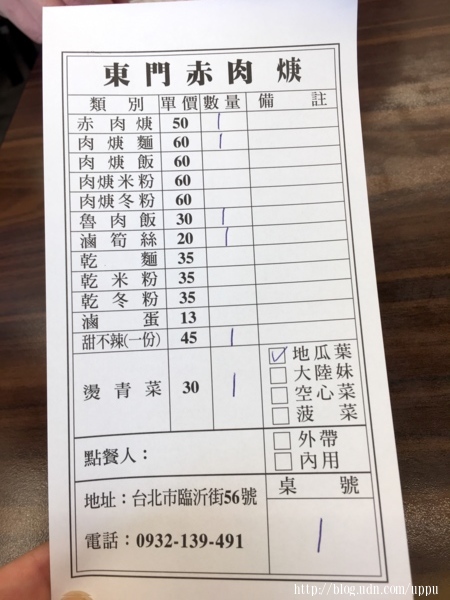 東門赤肉焿
類別 單價 數量 備註
赤肉焿 50 1
肉焿麵 60 1
肉焿飯 60
肉焿米粉 60
肉焿冬粉 60
魯肉飯 30 1
滷筍絲 20 1
乾麵 35
乾米粉 35
乾冬粉 35
滷蛋 13
甜不辣(一份) 45 1
燙青菜 30 1
☑ 地瓜葉
□ 大陸妹
□ 空心菜
□ 菠菜
點餐人：
□ 外帶
□ 內用
地址：台北市臨沂街56號
電話：0932-139-491
桌號
1
http://blog.udn.com/uppu